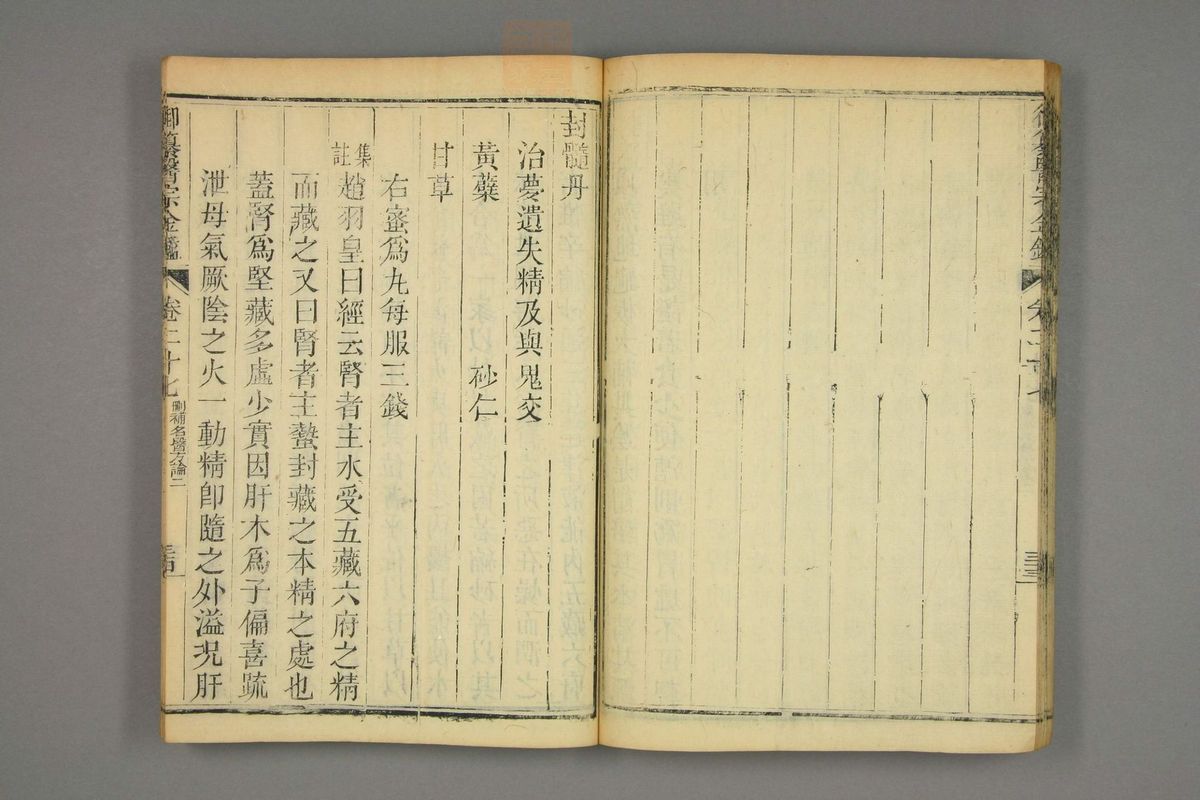 封髓丹
治夢遺失精及與鬼交
黃蘗 砂仁
甘草
右蜜為丸每服三錢
集註
趙羽皇曰經云腎者主水受五藏六府之精
而藏之又曰腎者主蟄封藏之本精之處也
蓋腎為堅藏多虛少實因肝木為子偏喜疏
泄母氣厥陰之火一動精即隨之外溢況肝
御纂醫宗金鑑
卷二十七
刪補名醫方論二